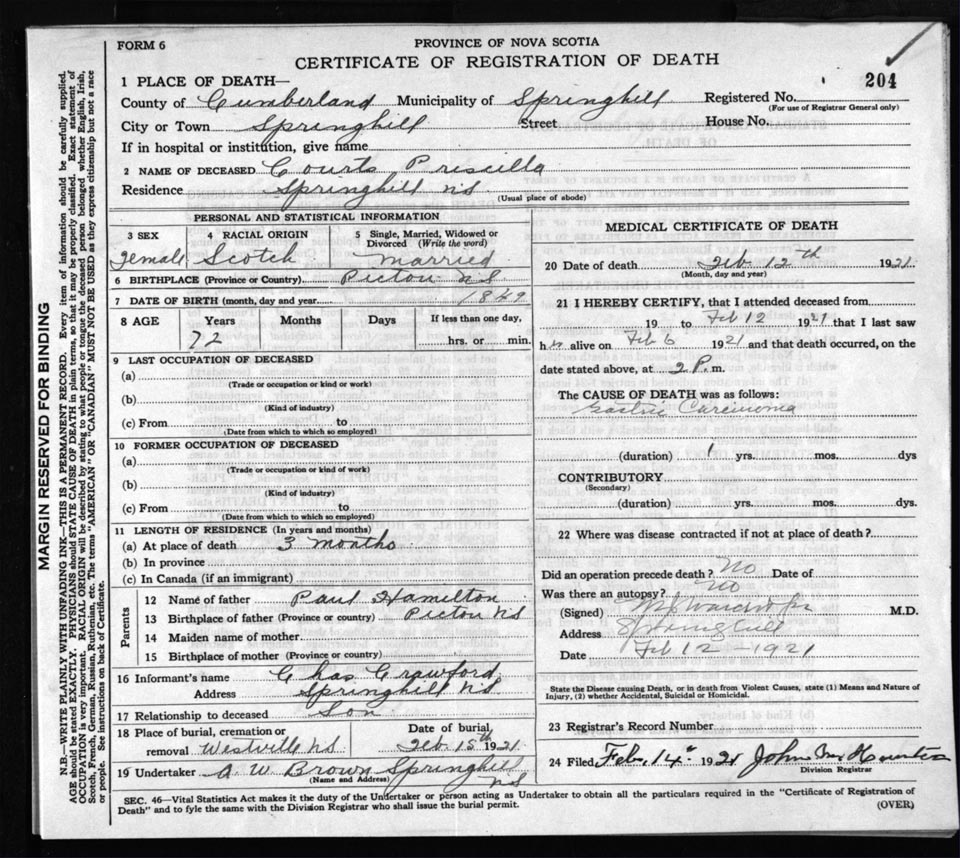 FORM 6
PROVINCE OF NOVA SCOTIA
CERTIFICATE OF REGISTRATION OF DEATH
204
1 PLACE OF DEATH—
County of Cumberland Municipality of Springhill Registered No.
(For use of Registrar General only)
City or Town Springhill Street House No.
If in hospital or institution, give name
2 NAME OF DECEASED Courts Priscilla
Residence Springhill NS
(Usual place of abode)
PERSONAL AND STATISTICAL INFORMATION
3 SEX 4 RACIAL ORIGIN 5 Single, Married, Widowed or Divorced (Write the word)
Female Scotch married
6 BIRTHPLACE (Province or Country) Pictou NS
7 DATE OF BIRTH (month, day and year) 1849
8 AGE Years Months Days If less than one day,
72 hrs. or min.
9 LAST OCCUPATION OF DECEASED
(a)
(Trade or occupation or kind or work)
(b)
(Kind of industry)
(c) From to
(Date from which to which so employed)
10 FORMER OCCUPATION OF DECEASED
(a)
(Trade or occupation or kind of work)
(b)
(Kind of industry)
(c) From to
(Date from which to which so employed)
11 LENGTH OF RESIDENCE (In years and months)
(a) At place of death 3 months
(b) In province
(c) In Canada (if an immigrant)
Parents
12 Name of father Paul Hamilton
13 Birthplace of father (Province or country) Pictou NS
14 Maiden name of mother
15 Birthplace of mother (Province or country)
16 Informant's name Chas Crawford
Address Springhill NS
17 Relationship to deceased Son
18 Place of burial, cremation or removal Westville NS
Date of burial Feb 15th 1921
19 Undertaker A W Brown Springhill NS
(Name and Address)
MEDICAL CERTIFICATE OF DEATH
20 Date of death Feb 12th 1921
(Month, day and year)
21 I HEREBY CERTIFY, that I attended deceased from
19 to Feb 12 1921 that I last saw
h er alive on Feb 6 1921 and that death occurred, on the
date stated above, at 2 P. m.
The CAUSE OF DEATH was as follows:
Gastric Carcinoma
(duration) 1 yrs. mos. dys
CONTRIBUTORY
(Secondary)
(duration) yrs. mos. dys.
22 Where was disease contracted if not at place of death?
Did an operation precede death? No Date of
Was there an autopsy? No
(Signed) M.D.
Address Springhill
Date Feb 12 - 1921
State the Disease causing Death, or in death from Violent Causes, state (1) Means and Nature of Injury, (2) whether Accidental, Suicidal or Homicidal.
23 Registrar's Record Number
24 Filed Feb. 14th 1921 John
Division Registrar
SEC. 46—Vital Statistics Act makes it the duty of the Undertaker or person acting as Undertaker to obtain all the particulars required in the "Certificate of Registration of
Death" and to fyle the same with the Division Registrar who shall issue the burial permit.
(OVER)
MARGIN RESERVED FOR BINDING
N.B.—WRITE PLAINLY WITH UNFADING INK—THIS IS A PERMANENT RECORD. Every item of information should be carefully supplied.
AGE should be stated EXACTLY. PHYSICIANS should STATE CAUSE OF DEATH in plain terms, so that it may be properly classified. Exact statement of
OCCUPATION is very important. RACIAL ORIGIN will be described by stating to what people or tongue the deceased person belonged, whether English, Irish,
Scotch, French, German, Russian, Ruthenian, etc. The terms "AMERICAN" OR "CANADIAN" MUST NOT BE USED as they express citizenship but not a race
or people. See instructions on back of Certificate.